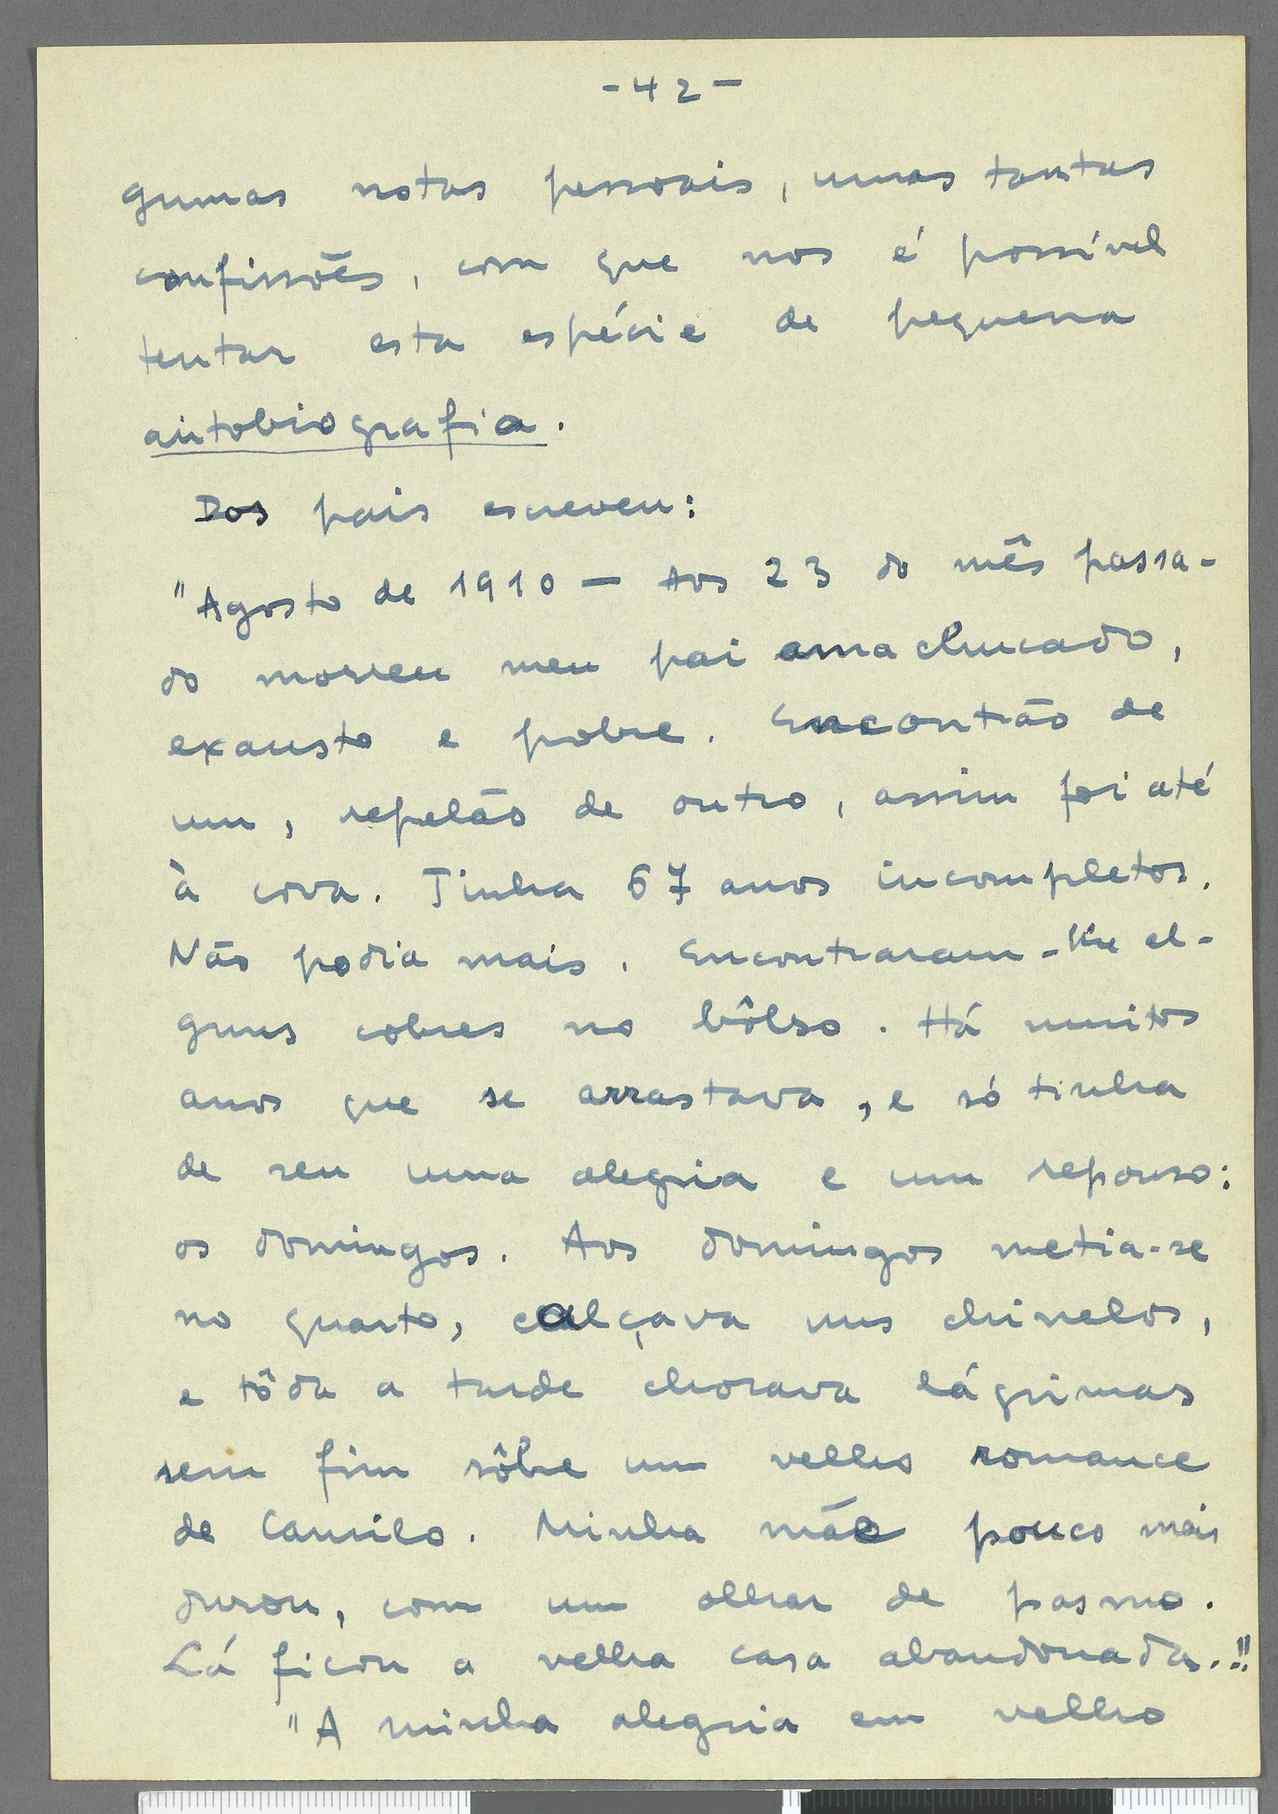 - 42 -
gumas notas pessoais, umas tantas
confissões, com que nos é possível
tentar esta espécie de pequena
autobiografia.
Dos pais escreveu:
"Agosto de 1910 — Aos 23 do mês passa-
do morreu meu pai amachucado,
exausto e pobre. Encontrão de
um, repelão de outro, assim foi até
à cova. Tinha 67 anos incompletos.
Não podia mais. Encontraram-lhe al-
guns cobres no bôlso. Há muitos
anos que se arrastava, e só tinha
de seu uma alegria e um repouso:
os domingos. Aos domingos metia-se
no quarto, calçava uns chinelos,
e tôda a tarde chorava lágrimas
sem fim sôbre um velho romance
de Camilo. Minha mãe pouco mais
durou, com um olhar de pasmo.
Lá ficou a velha casa abandonada.!!
"A minha alegria em velho